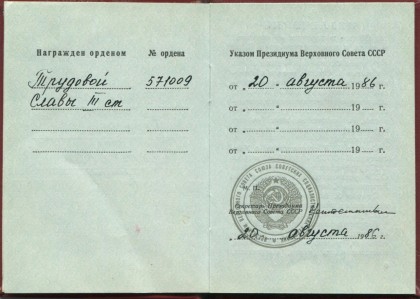 Награжден орденом
№ ордена
Трудовой
571009
Славы III ст
Указом Президиума Верховного Совета СССР
от „20" августа 1986 г.
от „ " 19 г.
от „ " 19 г.
от „ " 19 г.
М. П.
Секретарь Президиума
Верховного Совета СССР
„20" августа 1986 г.